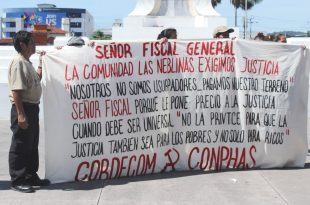 SEÑOR FISCAL GENERAL
LA COMUNIDAD LAS NEBLINAS EXIGIMOS JUSTICIA
"NOSOTROS NO SOMOS USURPADORES, PAGAMOS NUESTRO TERRENO"
SEÑOR FISCAL PORQUE LE PONE PRECIO A LA JUSTICIA
CUANDO DEBE SER UNIVERSAL "NO LA PRIVTCE PARA QUE LA
JUSTICIA TAMBIEN SEA PARA LOS POBRES Y NO SOLO PARA RICOS"
CODDECOM CONPHAS